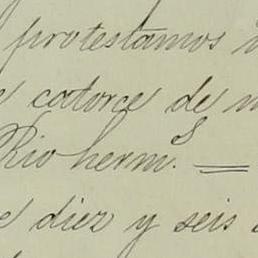 protestamos
catorce de
Rio herm.s
diez y seis